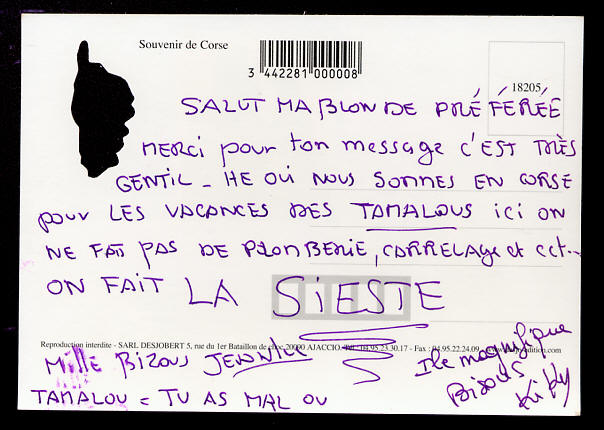 Souvenir de Corse
3 442281 000008
18205
SALUT MA BLONDE PRÉFÉRÉE
MERCI pour ton message C'EST TRÈS
GENTIL - HE OUI NOUS SOMMES EN CORSE
pour LES VACANCES DES TAMALOUS ici ON
NE FAIT PAS DE PLOMBERIE, CARRELAGE et ect...
ON FAIT LA SIESTE
Reproduction interdite - SARL DESJOBERT 5, rue du 1er Bataillon de choc, 20090 AJACCIO 04.95.23.30.17 - Fax : 04.95.22.24.09
Mille BIZOUS
TAMALOU = TU AS MAL OU
Ile magnifique
Bisous
Kiky